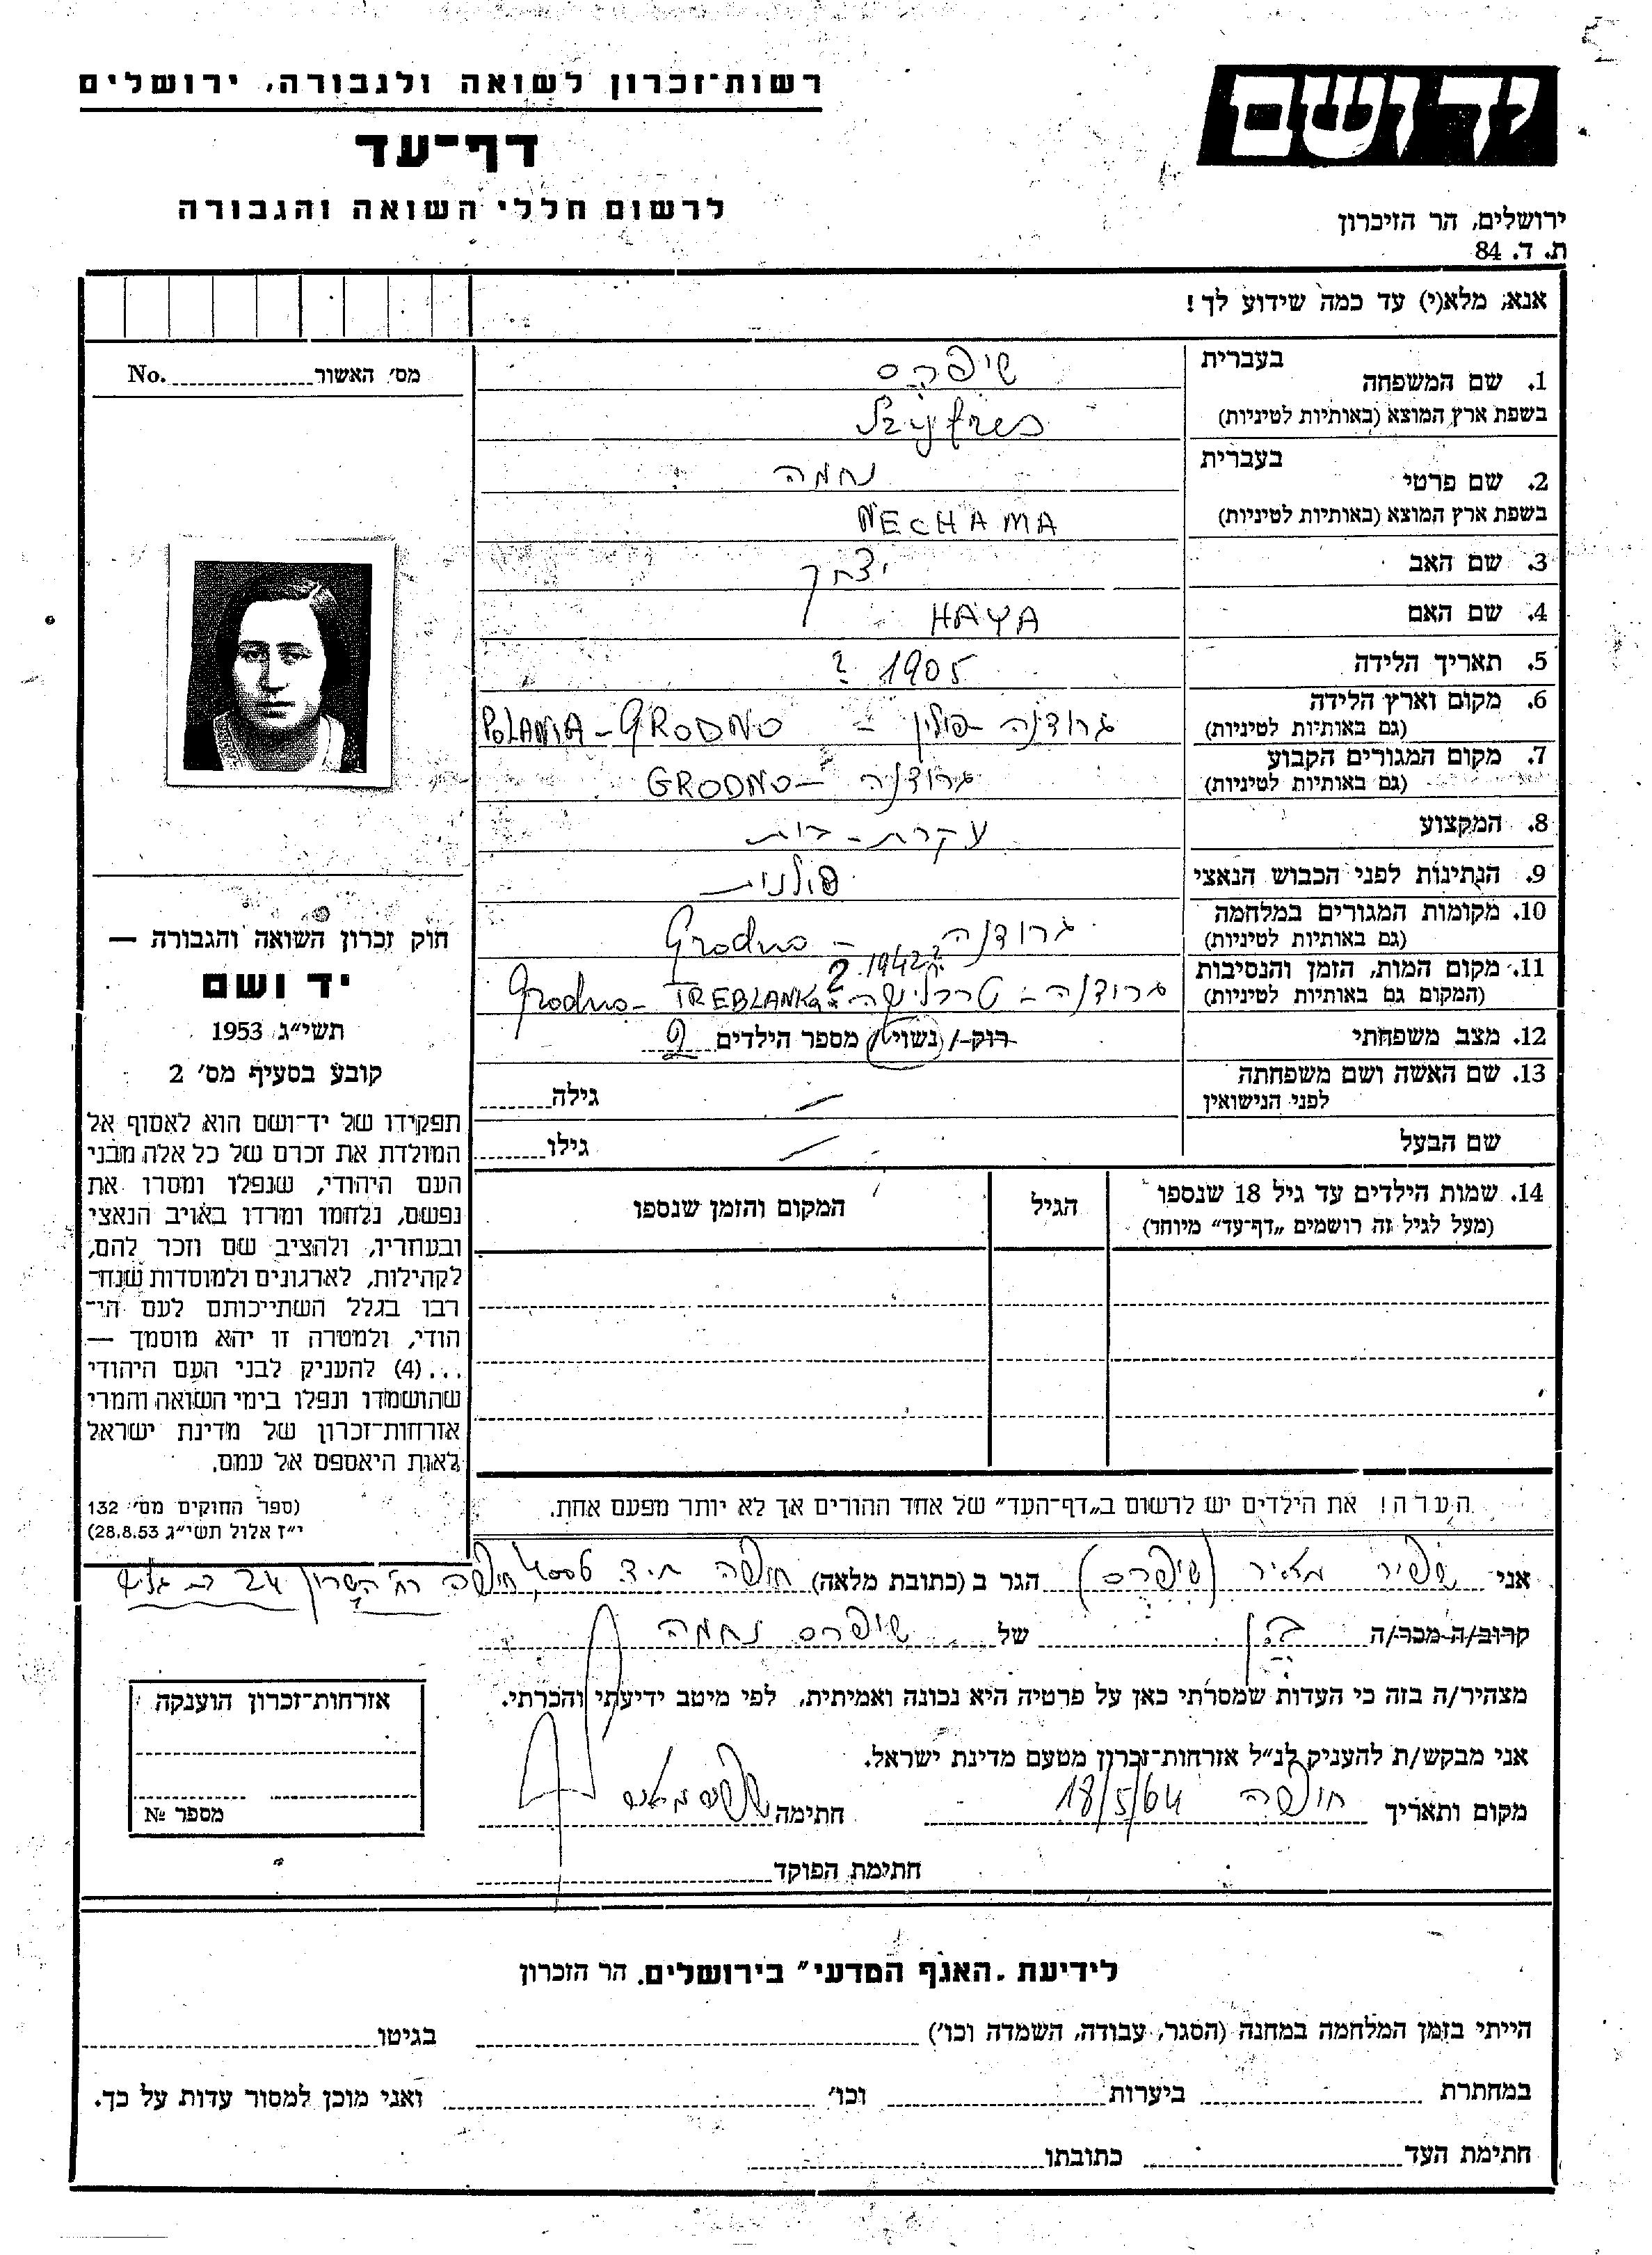 יד ושם
רשות־זכרון לשואה ולגבורה, ירושלים
דף־עד
לרשום חללי השואה והגבורה
ירושלים, הר הזיכרון
ת. ד. 84
אנא, מלא(י) עד כמה שידוע לך!
מס׳ האשור No.
1. שם המשפחה
בעברית שיפרס
בשפת ארץ המוצא (באותיות לטיניות) Szyfres
2. שם פרטי
בעברית נחמה
בשפת ארץ המוצא (באותיות לטיניות) NECHAMA
3. שם האב יצחק
4. שם האם HAYA
5. תאריך הלידה 1905 ?
6. מקום וארץ הלידה
(גם באותיות לטיניות) גרודנה - פולין - POLANIA - GRODNO
7. מקום המגורים הקבוע
(גם באותיות לטיניות) גרודנה - GRODNO
8. המקצוע עקרת - בית
9. הנתינות לפני הכבוש הנאצי פולנית
10. מקומות המגורים במלחמה
(גם באותיות לטיניות) גרודנה - Grodno
11. מקום המות, הזמן והנסיבות
(המקום גם באותיות לטיניות) גרודנה - טרבלינקה 1942 ? Grodno - TREBLANKA
12. מצב משפחתי רוק / נשוי / מספר הילדים 2
13. שם האשה ושם משפחתה
לפני הנישואין — גילה
שם הבעל — גילו
14. שמות הילדים עד גיל 18 שנספו
(מעל לגיל זה רושמים „דף־עד" מיוחד)
הגיל
המקום והזמן שנספו
חוק זכרון השואה והגבורה —
יד ושם
תשי״ג 1953
קובע בסעיף מס׳ 2
תפקידו של יד־ושם הוא לאסוף אל
המולדת את זכרם של כל אלה מבני
העם היהודי, שנפלו ומסרו את
נפשם, נלחמו ומרדו באויב הנאצי
ובעוזריו, ולהציב שם וזכר להם,
לקהילות, לארגונים ולמוסדות שנח־
רבו בגלל השתייכותם לעם הי־
הודי, ולמטרה זו יהא מוסמך —
...(4) להעניק לבני העם היהודי
שהושמדו ונפלו בימי השואה והמרי
אזרחות־זכרון של מדינת ישראל
לאות היאספם אל עמם.
(ספר החוקים מס׳ 132
י״ז אלול תשי״ג 28.8.53)
הערה! את הילדים יש לרשום ב„דף־העד" של אחד ההורים אך לא יותר מפעם אחת.
אני שפיר מאיר (שיפרס) הגר ב (כתובת מלאה) חיפה חיפה רח׳ השרון 24
קרוב/ה מכר/ה בן של שיפרס נחמה
מצהיר/ה בזה כי העדות שמסרתי כאן על פרטיה היא נכונה ואמיתית, לפי מיטב ידיעתי והכרתי.
אני מבקש/ת להעניק לנ״ל אזרחות־זכרון מטעם מדינת ישראל.
מקום ותאריך חיפה 18/5/64 חתימה
חתימת הפוקד
אזרחות־זכרון הוענקה
מספר №
לידיעת „האגף המדעי" בירושלים. הר הזכרון
הייתי בזמן המלחמה במחנה (הסגר, עבודה, השמדה וכו׳) בגיטו
במחתרת ביערות וכו׳ ואני מוכן למסור עדות על כך.
חתימת העד כתובתו